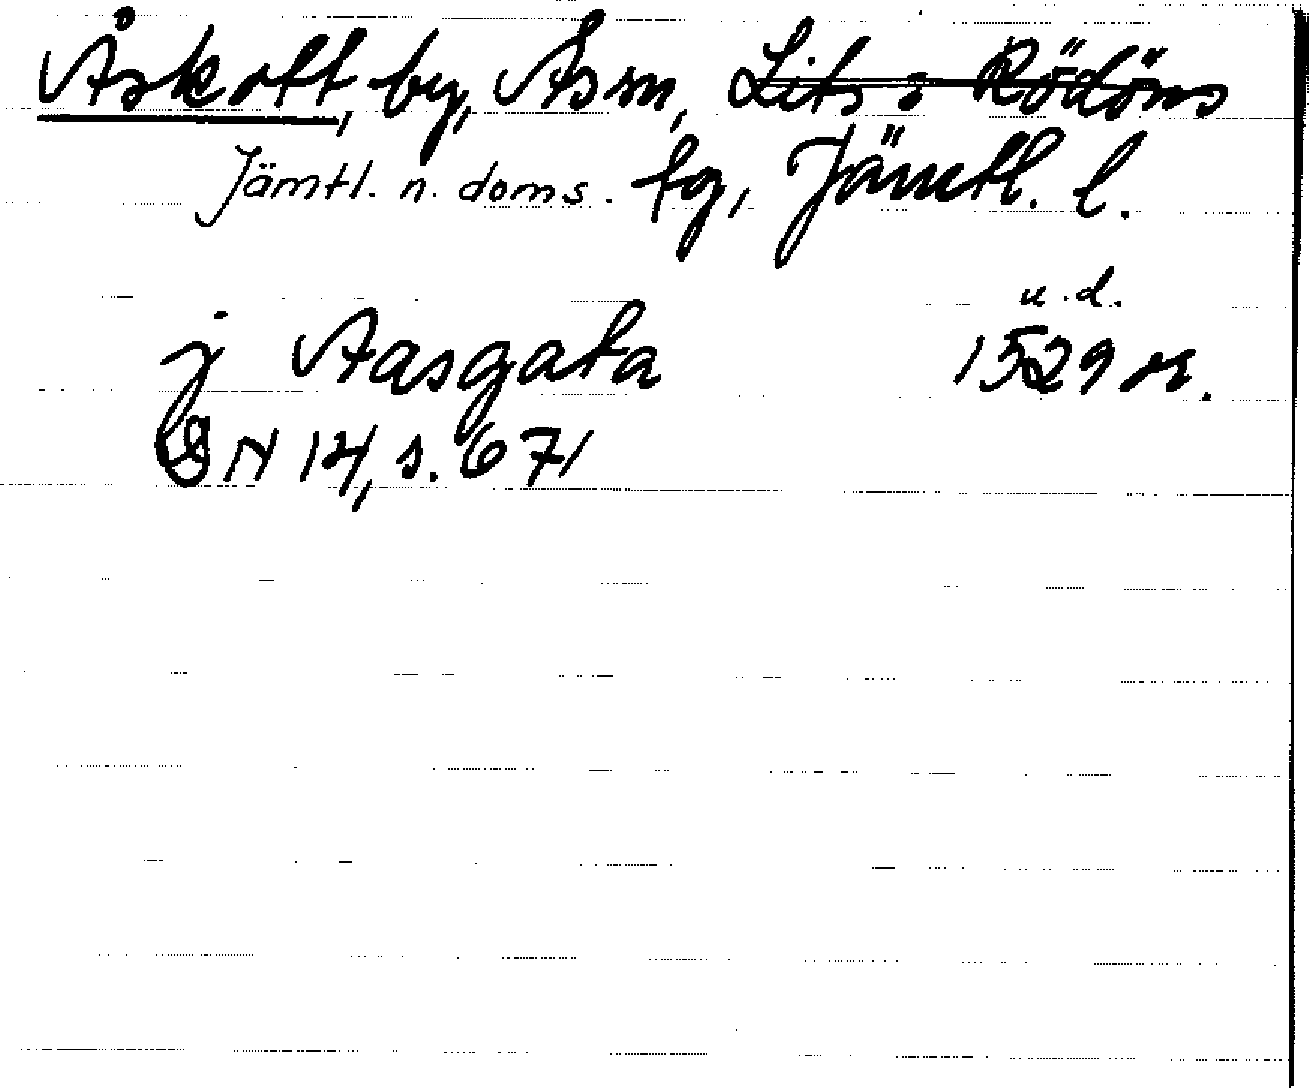 Åskott, by, Ås sn, Lits o Rödöns
Jämtl. n. doms. tg, Jämtl. l.
u.d.
j Aasgata 1529 or.
DN 14, s. 671